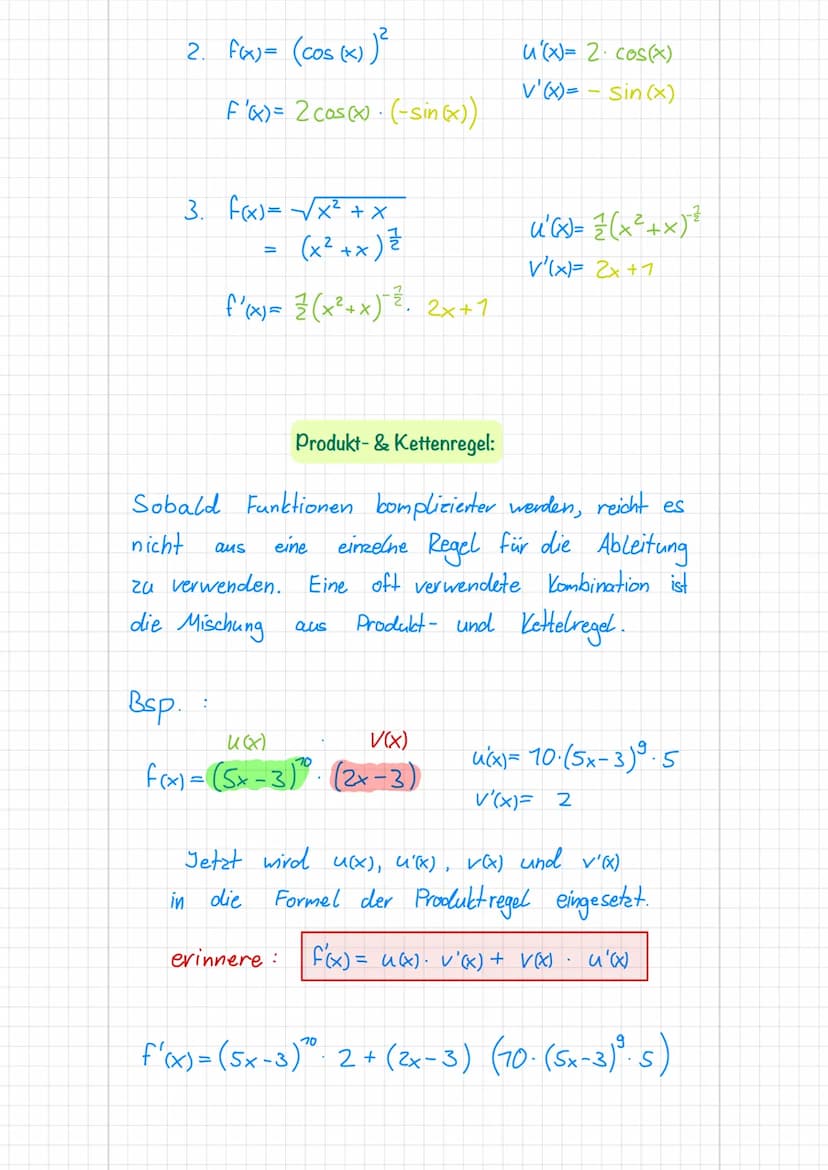 2. f(x)= (cos(x))²
u'(x)= 2·cos(x)
v'(x)= - sin(x)
F'(x)= 2cos(x)·(-sin(x))
3. f(x)= √x² + x
= (x² + x)^½
u'(x)= ½(x²+x)^-½
v'(x)= 2x +1
f'(x)= ½(x²+x)^-½ · 2x+1
Produkt- & Kettenregel:
Sobald Funktionen komplizierter werden, reicht es
nicht aus eine einzelne Regel für die Ableitung
zu verwenden. Eine oft verwendete Kombination ist
die Mischung aus Produkt- und Kettelregel.
Bsp. :
u(x) · V(x)
f(x) = (5x-3)¹⁰ · (2x-3)
u'(x)= 10·(5x-3)⁹·5
v'(x)= 2
Jetzt wird u(x), u'(x), v(x) und v'(x)
in die Formel der Produktregel eingesetzt.
erinnere : f'(x)= u(x)· v'(x)+ v(x) · u'(x)
f'(x)=(5x-3)¹⁰· 2+(2x-3) (10·(5x-3)⁹·5)